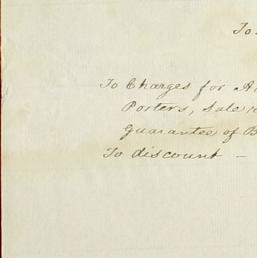 To
To Charges for
Porters, Sale
Guarantee of B
To discount -